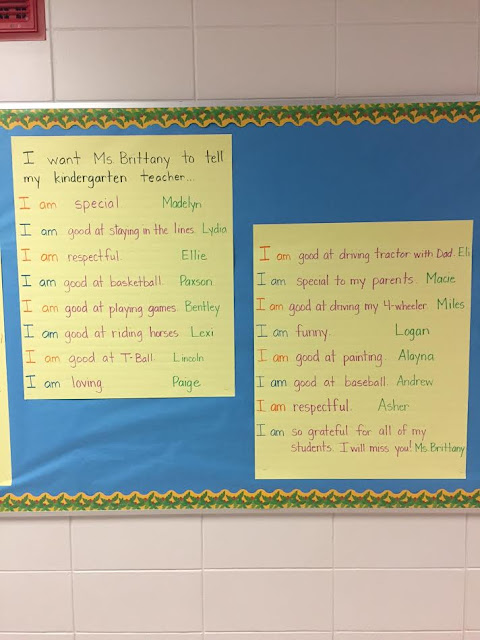 I want Ms Brittany to tell
my kindergarten teacher...
I am special. Madelyn
I am good at staying in the lines. Lydia
I am respectful. Ellie
I am good at basketball. Paxson
I am good at playing games. Bentley
I am good at riding horses. Lexi
I am good at T-Ball. Lincoln
I am loving. Paige
I am good at driving tractor with Dad. Eli
I am special to my parents. Macie
I am good at driving my 4-wheeler. Miles
I am funny. Logan
I am good at painting. Alayna
I am good at baseball. Andrew
I am respectful. Asher
I am so grateful for all of my
students. I will miss you! Ms Brittany